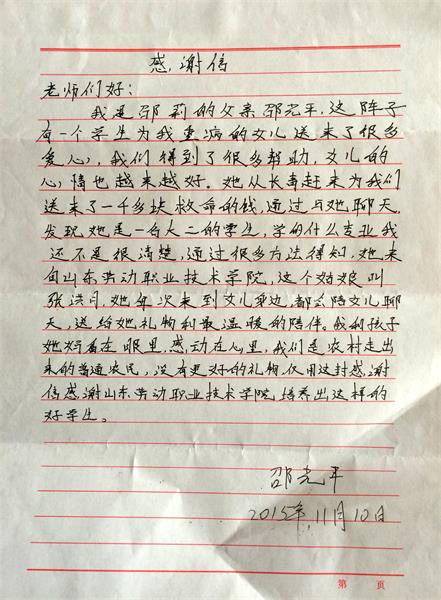 感谢信
老师们好：
我是邵莉的父亲邵光平，这阵子
有一个学生为我重病的女儿送来了很多
爱心，我们得到了很多帮助，女儿的
心情也越来越好。她从长青赶来为我们
送来了一千多块救命的钱，通过与她聊天，
发现她是一名大二的学生，学的什么专业我
还不是很清楚，通过很多方法得知，她来
自山东劳动职业技术学院，这个姑娘叫
张洪月，她每次来到女儿身边，都会陪女儿聊
天，送给她礼物和最温暖的陪伴。我和孩子
她妈看在眼里，感动在心里，我们是农村走出
来的普通农民，没有更好的礼物，仅用这封感谢
信感谢山东劳动职业技术学院培养出这样的
好学生。
邵光平
2015年.11月10日
第 页